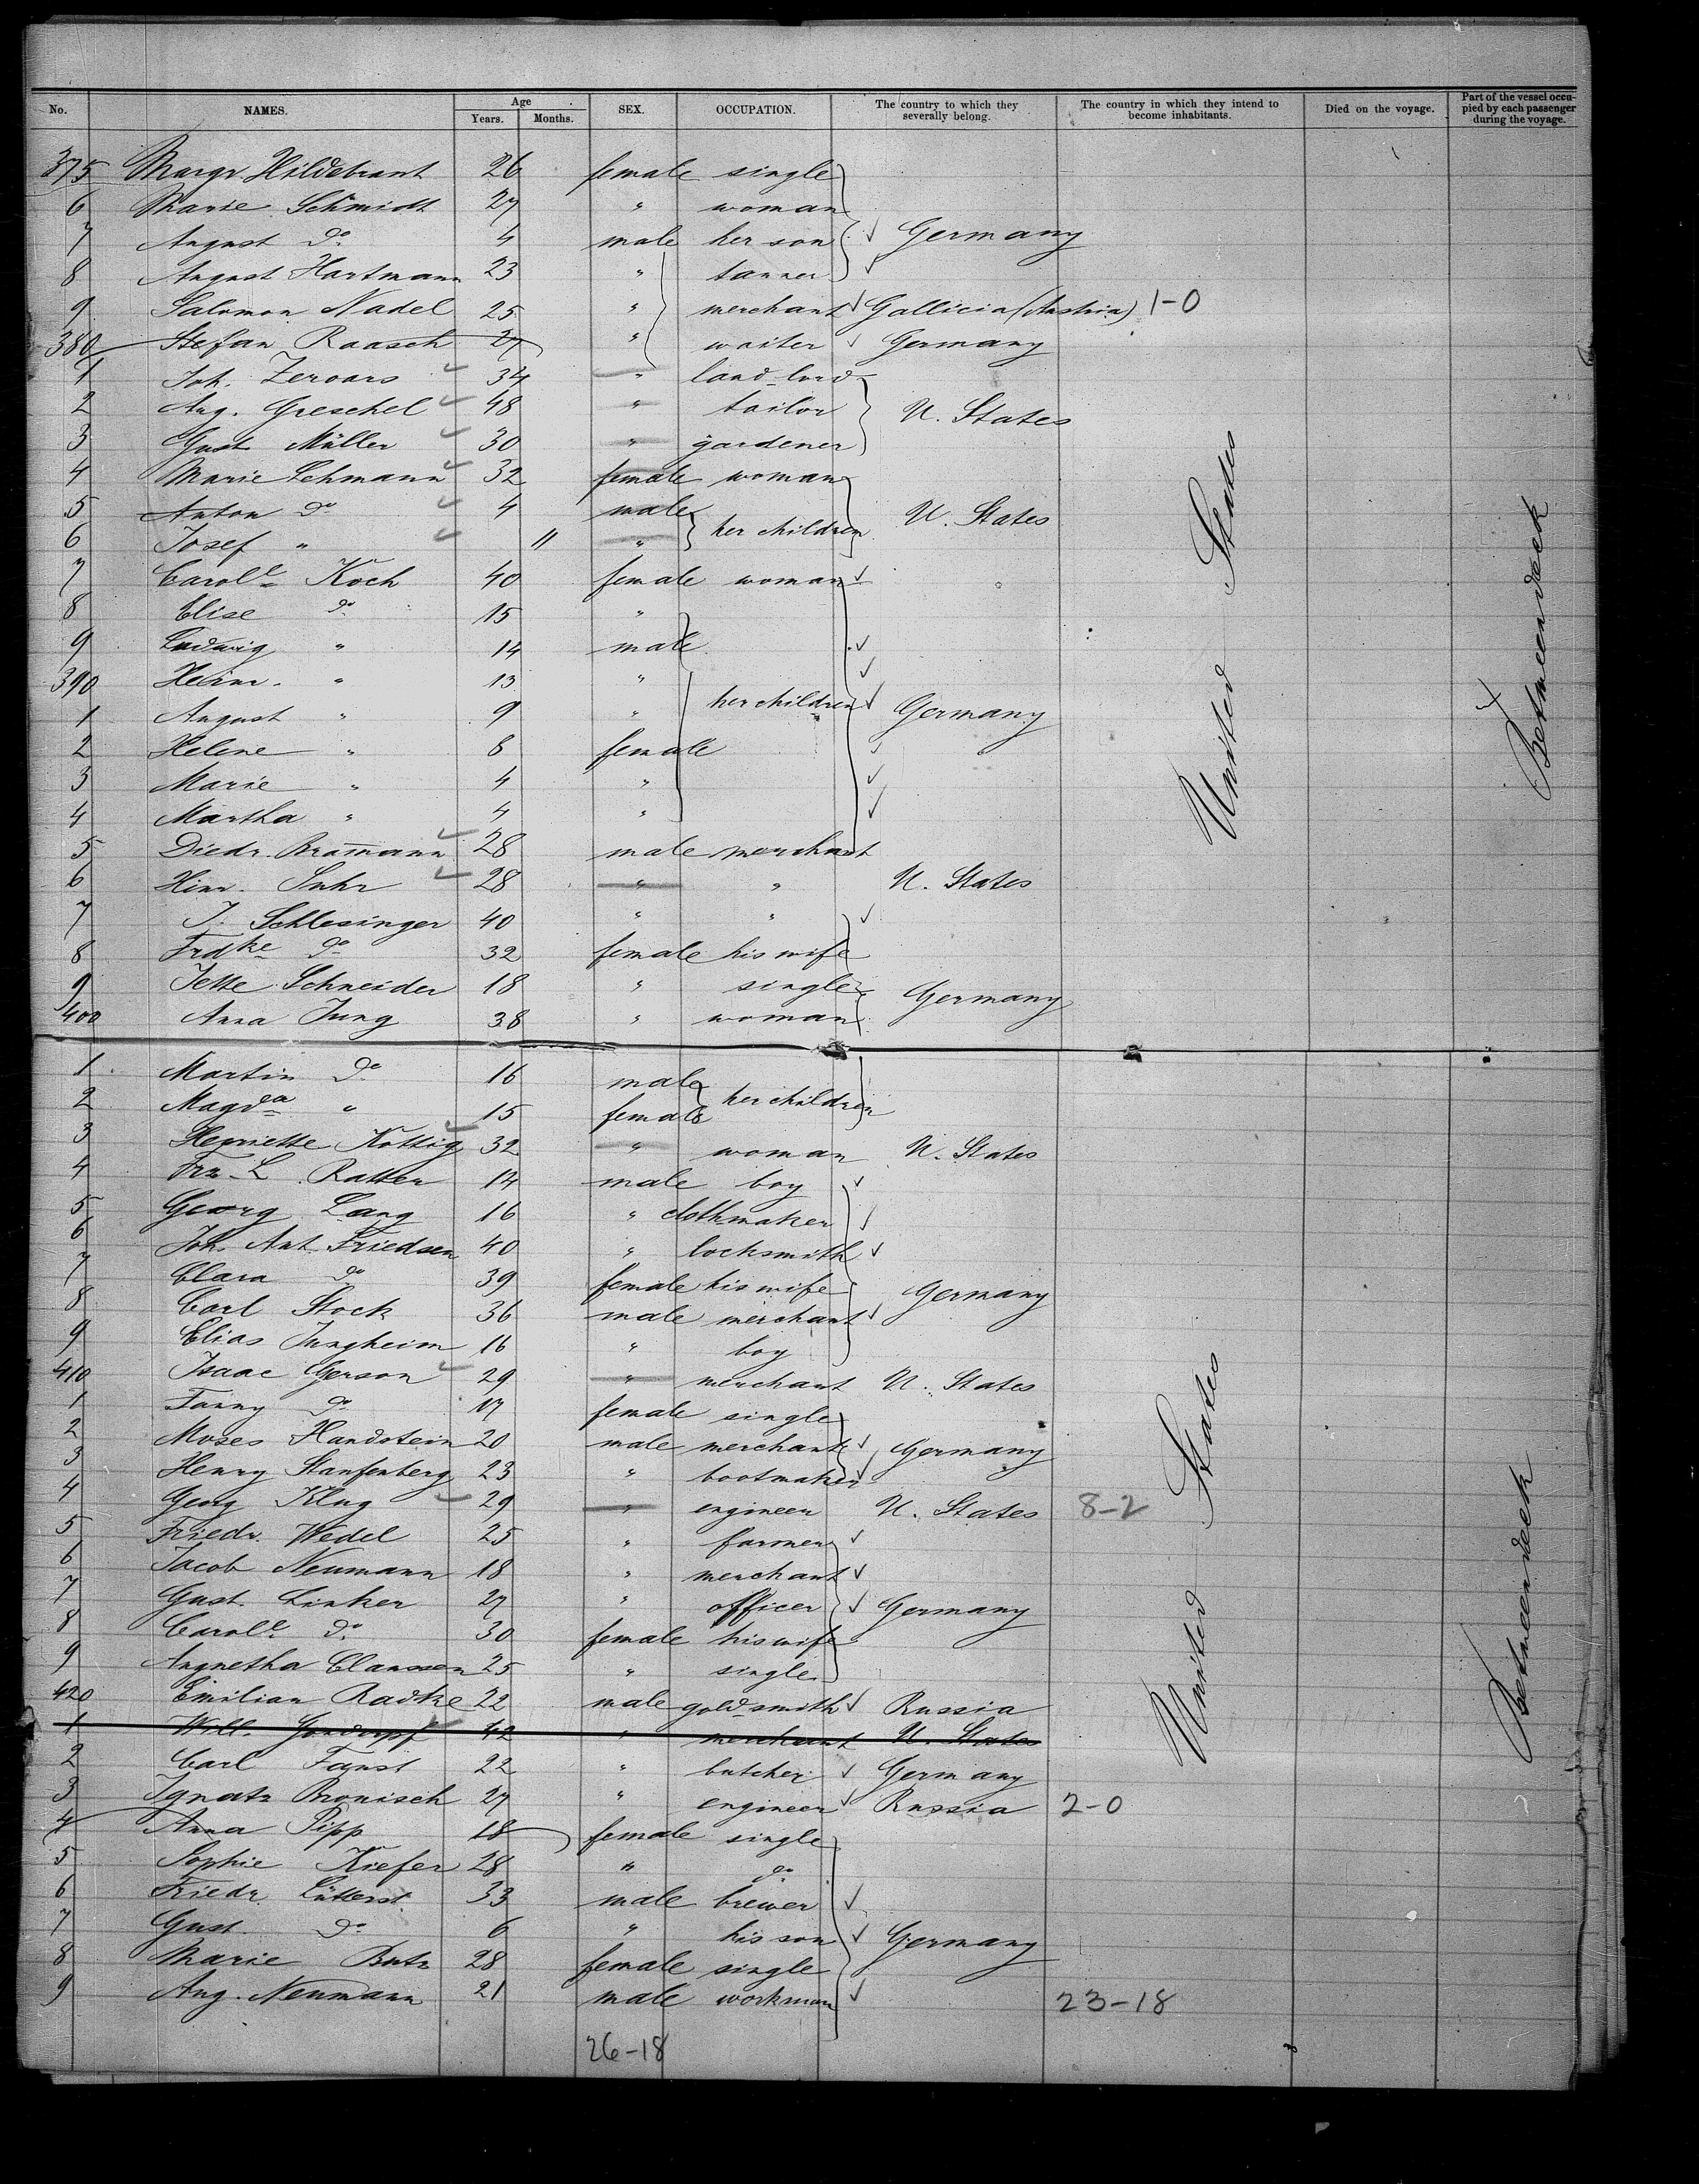 No. NAMES. Age Years. Months. SEX. OCCUPATION. The country to which they severally belong. The country in which they intend to become inhabitants. Died on the voyage. Part of the vessel occupied by each passenger during the voyage.
375 Margr Hildebrant 26 female single
6 Marie Schmidt 27 " woman
7 August do 4 male her son Germany
8 August Hartmann 23 " tanner
9 Salomon Nadel 25 " merchant Gallicia (Austria) 1-0
380 Stefan Raasch 27 " waiter Germany
1 Joh. Zeroars 34 " land-lord
2 Aug. Greschel 48 " tailor U. States
3 Gust. Müller 30 " gardener
4 Marie Lehmann 32 female woman
5 Anton do 4 male her children U. States
6 Josef " 11 "
7 Carole Koch 40 female woman
8 Elise do 15 "
9 Ludwig " 14 male
390 Heinr. " 13 " her children
1 August " 9 " Germany
2 Helene " 6 female
3 Marie " 4 "
4 Martha " 4 "
5 Diedr. Bramann 28 male merchant
6 Hinr. Suhr 28 " " U. States
7 J. Schlesinger 40 " "
8 Frdke do 32 female his wife
9 Jette Schneider 18 " single Germany
400 Anna Jung 38 " woman
1 Martin do 16 male her children
2 Magda " 15 female
3 Henriette Kottig 32 " woman U. States
4 Frz. L. Ratter 14 male boy
5 Georg Lang 16 " clothmaker
6 Joh. Ant. Friedsen 40 " locksmith
7 Clara do 39 female his wife Germany
8 Carl Stock 36 male merchant
9 Elias Jungheim 16 " boy
410 Isaac Gerson 29 " merchant U. States
1 Fanny do 17 female single
2 Moses Handstein 20 male merchant Germany
3 Henry Stanfenberg 23 " bootmaker
4 Georg Klug 29 " engineer U. States 8-2
5 Friedr. Wedel 25 " farmer
6 Jacob Neumann 18 " merchant
7 Gust. Linker 27 " officer Germany
8 Carole do 30 female his wife
9 Angnetha Claussen 25 " single
420 Emilian Radtke 22 male goldsmith Russia
1 Will. 42 " merchant U. States
2 Carl Faust 22 " butcher Germany
3 Ignatz Bronisch 27 " engineer Russia 2-0
4 Anna Pipp 18 female single
5 Sophie Kiefer 28 " do
6 Friedr. Lütterst 33 male brewer
7 Gust. do 6 " his son Germany
8 Marie Butz 28 female single
9 Aug. Neumann 21 male workman 23-18
26-18
United States
Betweendeck
United States
Betweendeck